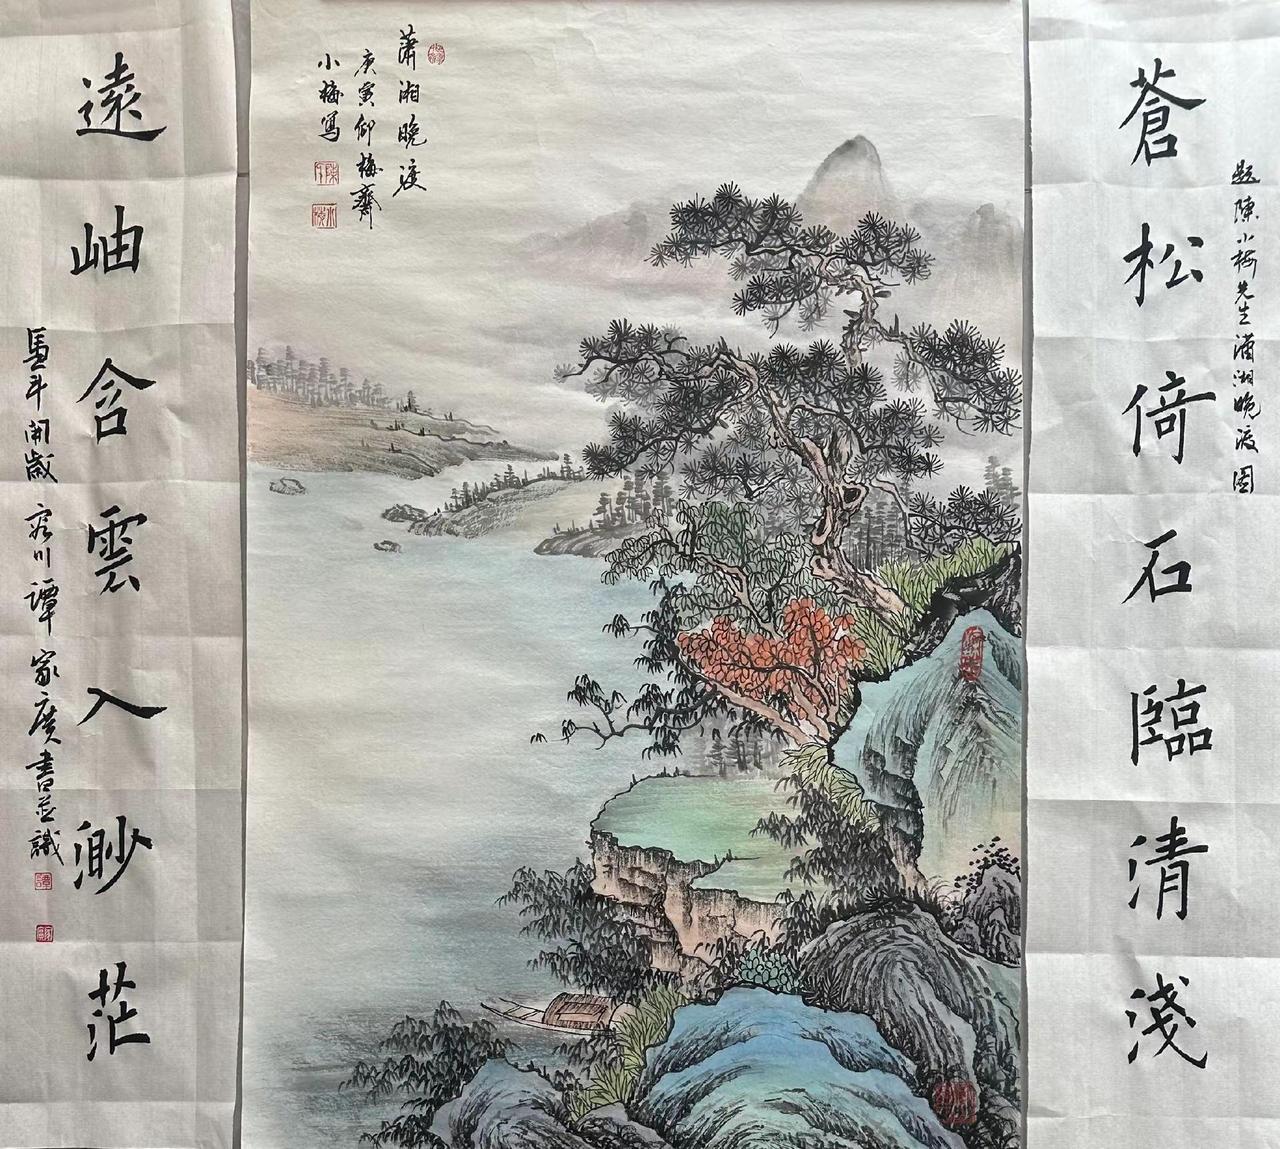 題陳小梅先生瀟湘晚渡圖
蒼松倚石臨清淺
蕭湘晚渡
庚寅仰梅齋
小梅寫
遠岫含雲入渺茫
馬年開歲 川譚家廣書並識